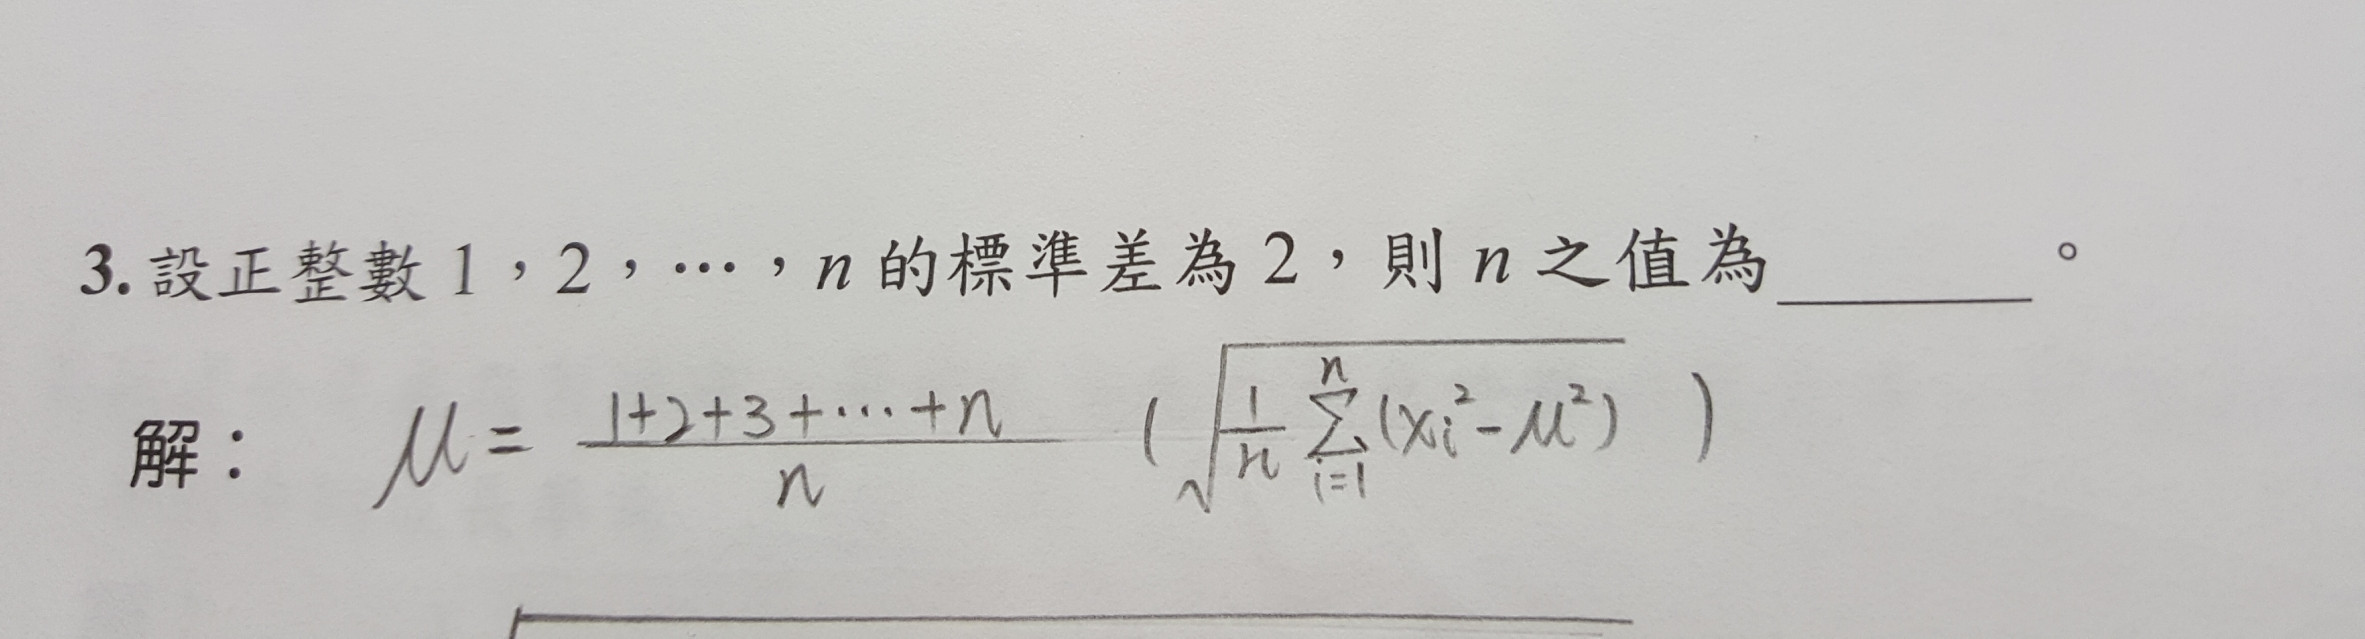 3. 設正整數 1，2，…，n 的標準差為 2，則 n 之值為______。
解： μ = (1+2+3+…+n)/n ( √(1/n ∑_{i=1}^{n} (xi² - μ²)) )